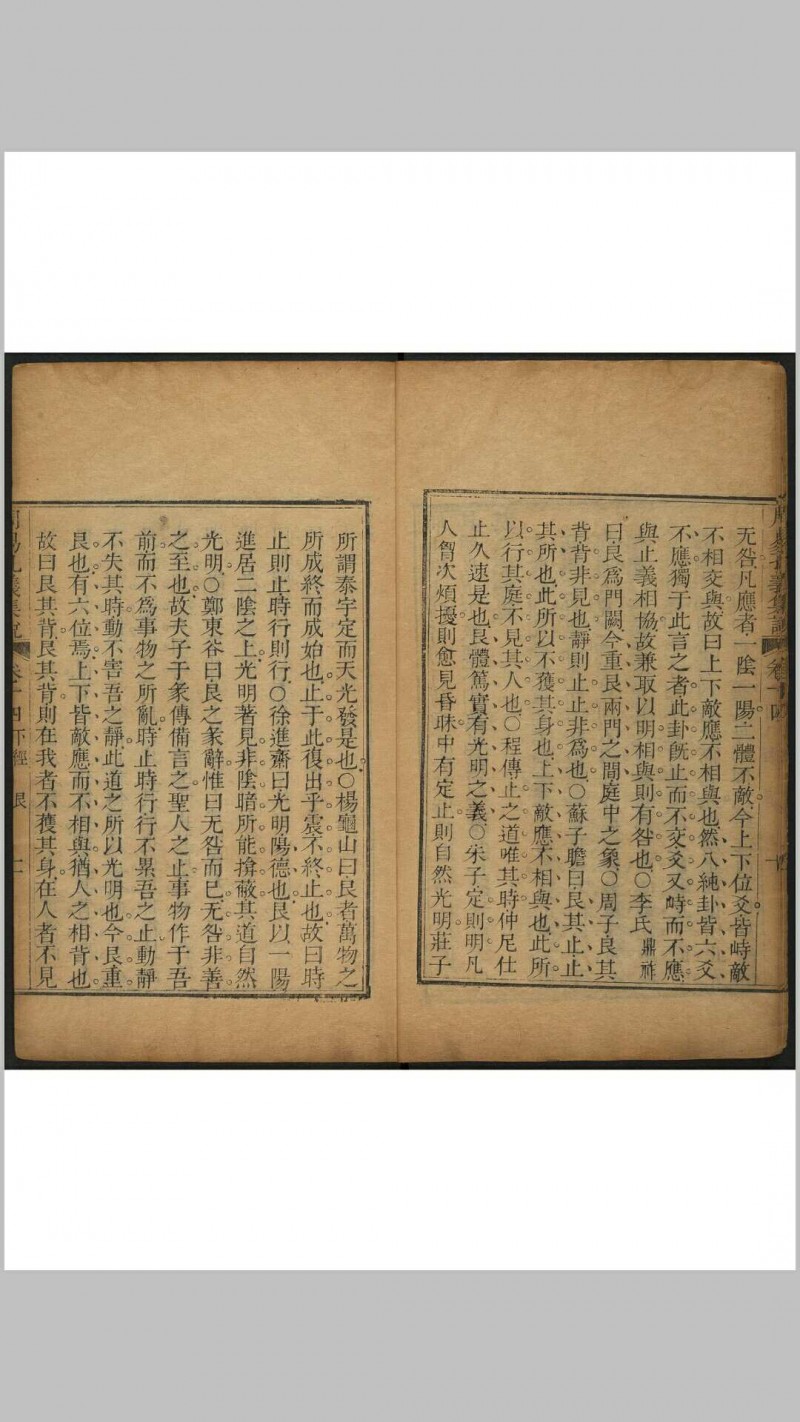 无咎凡應者一陰一陽二體不敵今上下位爻皆峙敵
不相交與故曰上下敵應不相與也然八純卦皆六爻
不應獨于此言之者此卦旣止而不交爻又峙而不應
與止義相協故兼取以明相與則有咎也○李氏鼎祚
曰艮爲門闕今重艮兩門之間庭中之象○周子艮其
背背非見也靜則止止非爲也○蘇子瞻曰艮其止止
其所也此所以不獲其身也上下敵應不相與也此所
以行其庭不見其人也○程傳止之道唯其時仲尼仕
止久速是也艮體篤實有光明之義○朱子定則明凡
人胷次煩擾則愈見昏昧中有定止則自然光明莊子
所謂泰宇定而天光發是也○楊龜山曰艮者萬物之
所成終而成始也止于此復出乎震不終止也故曰時
止則止時行則行○徐進齋曰光明陽德也艮以一陽
進居二陰之上光明著見非陰暗所能揜蔽其道自然
光明○鄭東谷曰艮之彖辭惟曰无咎而已无咎非善
之至也故夫子于彖傳備言之聖人之止事物作于吾
前而不爲事物之所亂時止時行行不累吾之止動靜
不失其時動不害吾之靜此道之所以光明也今艮重
艮也有六位焉上下皆敵應而不相與猶人之相背也
故曰艮其背艮其背則在我者不獲其身在人者不見
卷十四下經 艮 十一